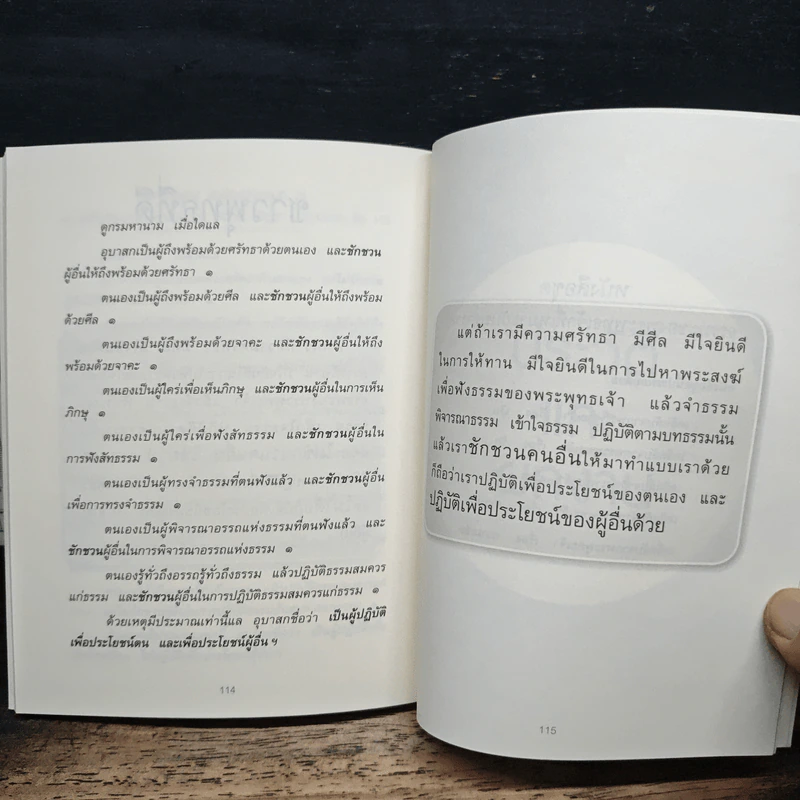 ดูกรมหานาม เมื่อใดแล
อุบาสกเป็นผู้ถึงพร้อมด้วยศรัทธาด้วยตนเอง และชักชวน
ผู้อื่นให้ถึงพร้อมด้วยศรัทธา ๑
ตนเองเป็นผู้ถึงพร้อมด้วยศีล และชักชวนผู้อื่นให้ถึงพร้อม
ด้วยศีล ๑
ตนเองเป็นผู้ถึงพร้อมด้วยจาคะ และชักชวนผู้อื่นให้ถึง
พร้อมด้วยจาคะ ๑
ตนเองเป็นผู้ใคร่เพื่อเห็นภิกษุ และชักชวนผู้อื่นในการเห็น
ภิกษุ ๑
ตนเองเป็นผู้ใคร่เพื่อฟังสัทธรรม และชักชวนผู้อื่นใน
การฟังสัทธรรม ๑
ตนเองเป็นผู้ทรงจำธรรมที่ตนฟังแล้ว และชักชวนผู้อื่น
เพื่อการทรงจำธรรม ๑
ตนเองเป็นผู้พิจารณาอรรถแห่งธรรมที่ตนฟังแล้ว และ
ชักชวนผู้อื่นในการพิจารณาอรรถแห่งธรรม ๑
ตนเองรู้ทั่วถึงอรรถรู้ทั่วถึงธรรม แล้วปฏิบัติธรรมสมควร
แก่ธรรม และชักชวนผู้อื่นในการปฏิบัติธรรมสมควรแก่ธรรม ๑
ด้วยเหตุมีประมาณเท่านี้แล อุบาสกชื่อว่า เป็นผู้ปฏิบัติ
เพื่อประโยชน์ตน และเพื่อประโยชน์ผู้อื่น ฯ
114
แต่ถ้าเรามีความศรัทธา มีศีล มีใจยินดี
ในการให้ทาน มีใจยินดีในการไปหาพระสงฆ์
เพื่อฟังธรรมของพระพุทธเจ้า แล้วจำธรรม
พิจารณาธรรม เข้าใจธรรม ปฏิบัติตามบทธรรมนั้น
แล้วเราชักชวนคนอื่นให้มาทำแบบเราด้วย
ก็ถือว่าเราปฏิบัติเพื่อประโยชน์ของตนเอง และ
ปฏิบัติเพื่อประโยชน์ของผู้อื่นด้วย
115